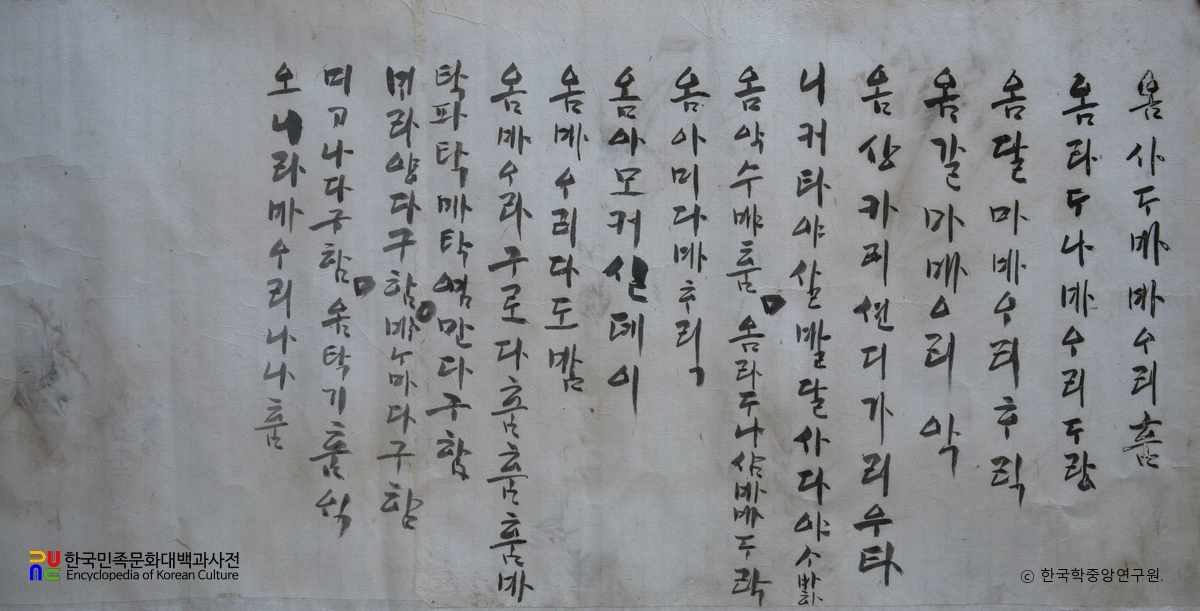 옴사두바바수리훔
옴라두나바수리두랑
옴달마바우리후릭
옴갈마바우리악
옴산카리션디가리우타
니커타야살발달사다야수바하
옴악수뱌훔 옴라두나삼바바두락
옴아미다바후릭
옴아모커실데이
옴바수리다도밤
옴바수라구로다훔훔훔바
탁파탁바탁염만다구함
바라양다구함 바누마다구함
미고나다구함 옴탁기훔싁
오니라바수리나나훔
한국민족문화대백과사전
Encyclopedia of Korean Culture
© 한국학중앙연구원.